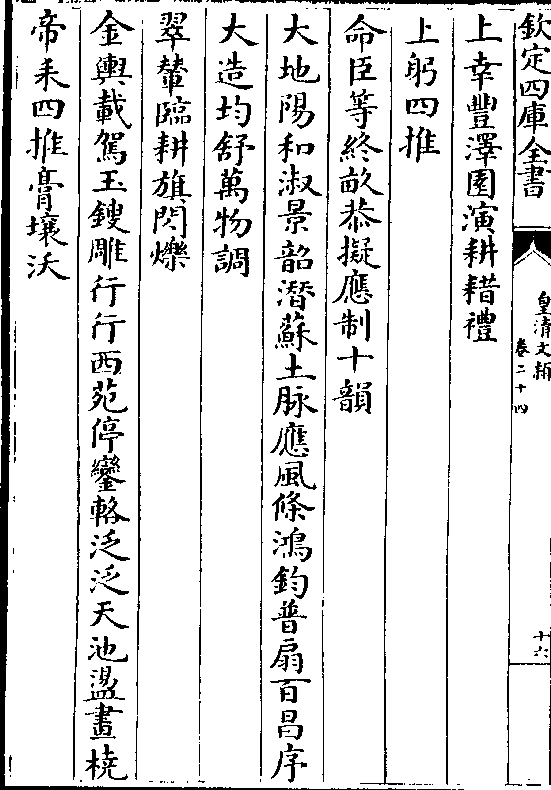 欽定四庫全書
皇清文頴
卷二十四
十六
上幸豐澤園演耕耤禮
上躬四推
命臣等終畝恭擬應制十韻
大地陽和淑景韶潛蘇土脉應風條鴻鈞普扇百昌序
大造均舒萬物調
翠輦臨耕旗閃爍
金輿載駕玉鎪雕行行西苑停鑾輅泛泛天池盪畫橈
帝耒四推膏壤沃